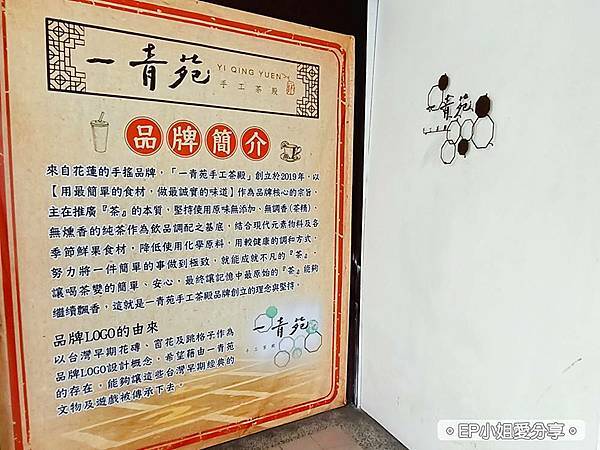 一青苑
YI QING YUEN
手工茶殿
品牌簡介
來自花蓮的手搖品牌，「一青苑手工茶殿」創立於2019年，以
【用最簡單的食材，做最誠實的味道】作為品牌核心的宗旨，
主在推廣『茶』的本質，堅持使用原味無添加、無調香(茶精)、
無燻香的純茶作為飲品調配之基底，結合現代元素物料及各
季節鮮果食材，降低使用化學原料，用較健康的調和方式，
努力將一件簡單的事做到極致，就能成就不凡的『茶』，
讓喝茶變的簡單、安心，最終讓記憶中最原始的『茶』能夠
繼續飄香，這就是一青苑手工茶殿品牌創立的理念與堅持。
品牌LOGO的由來
以台灣早期花磚、窗花及跳格子作為
品牌LOGO設計概念，希望藉由一青苑
的存在，能夠讓這些台灣早期經典的
文物及遊戲被傳承下去。
一青苑
手工茶殿
一青苑
EP小姐愛分享